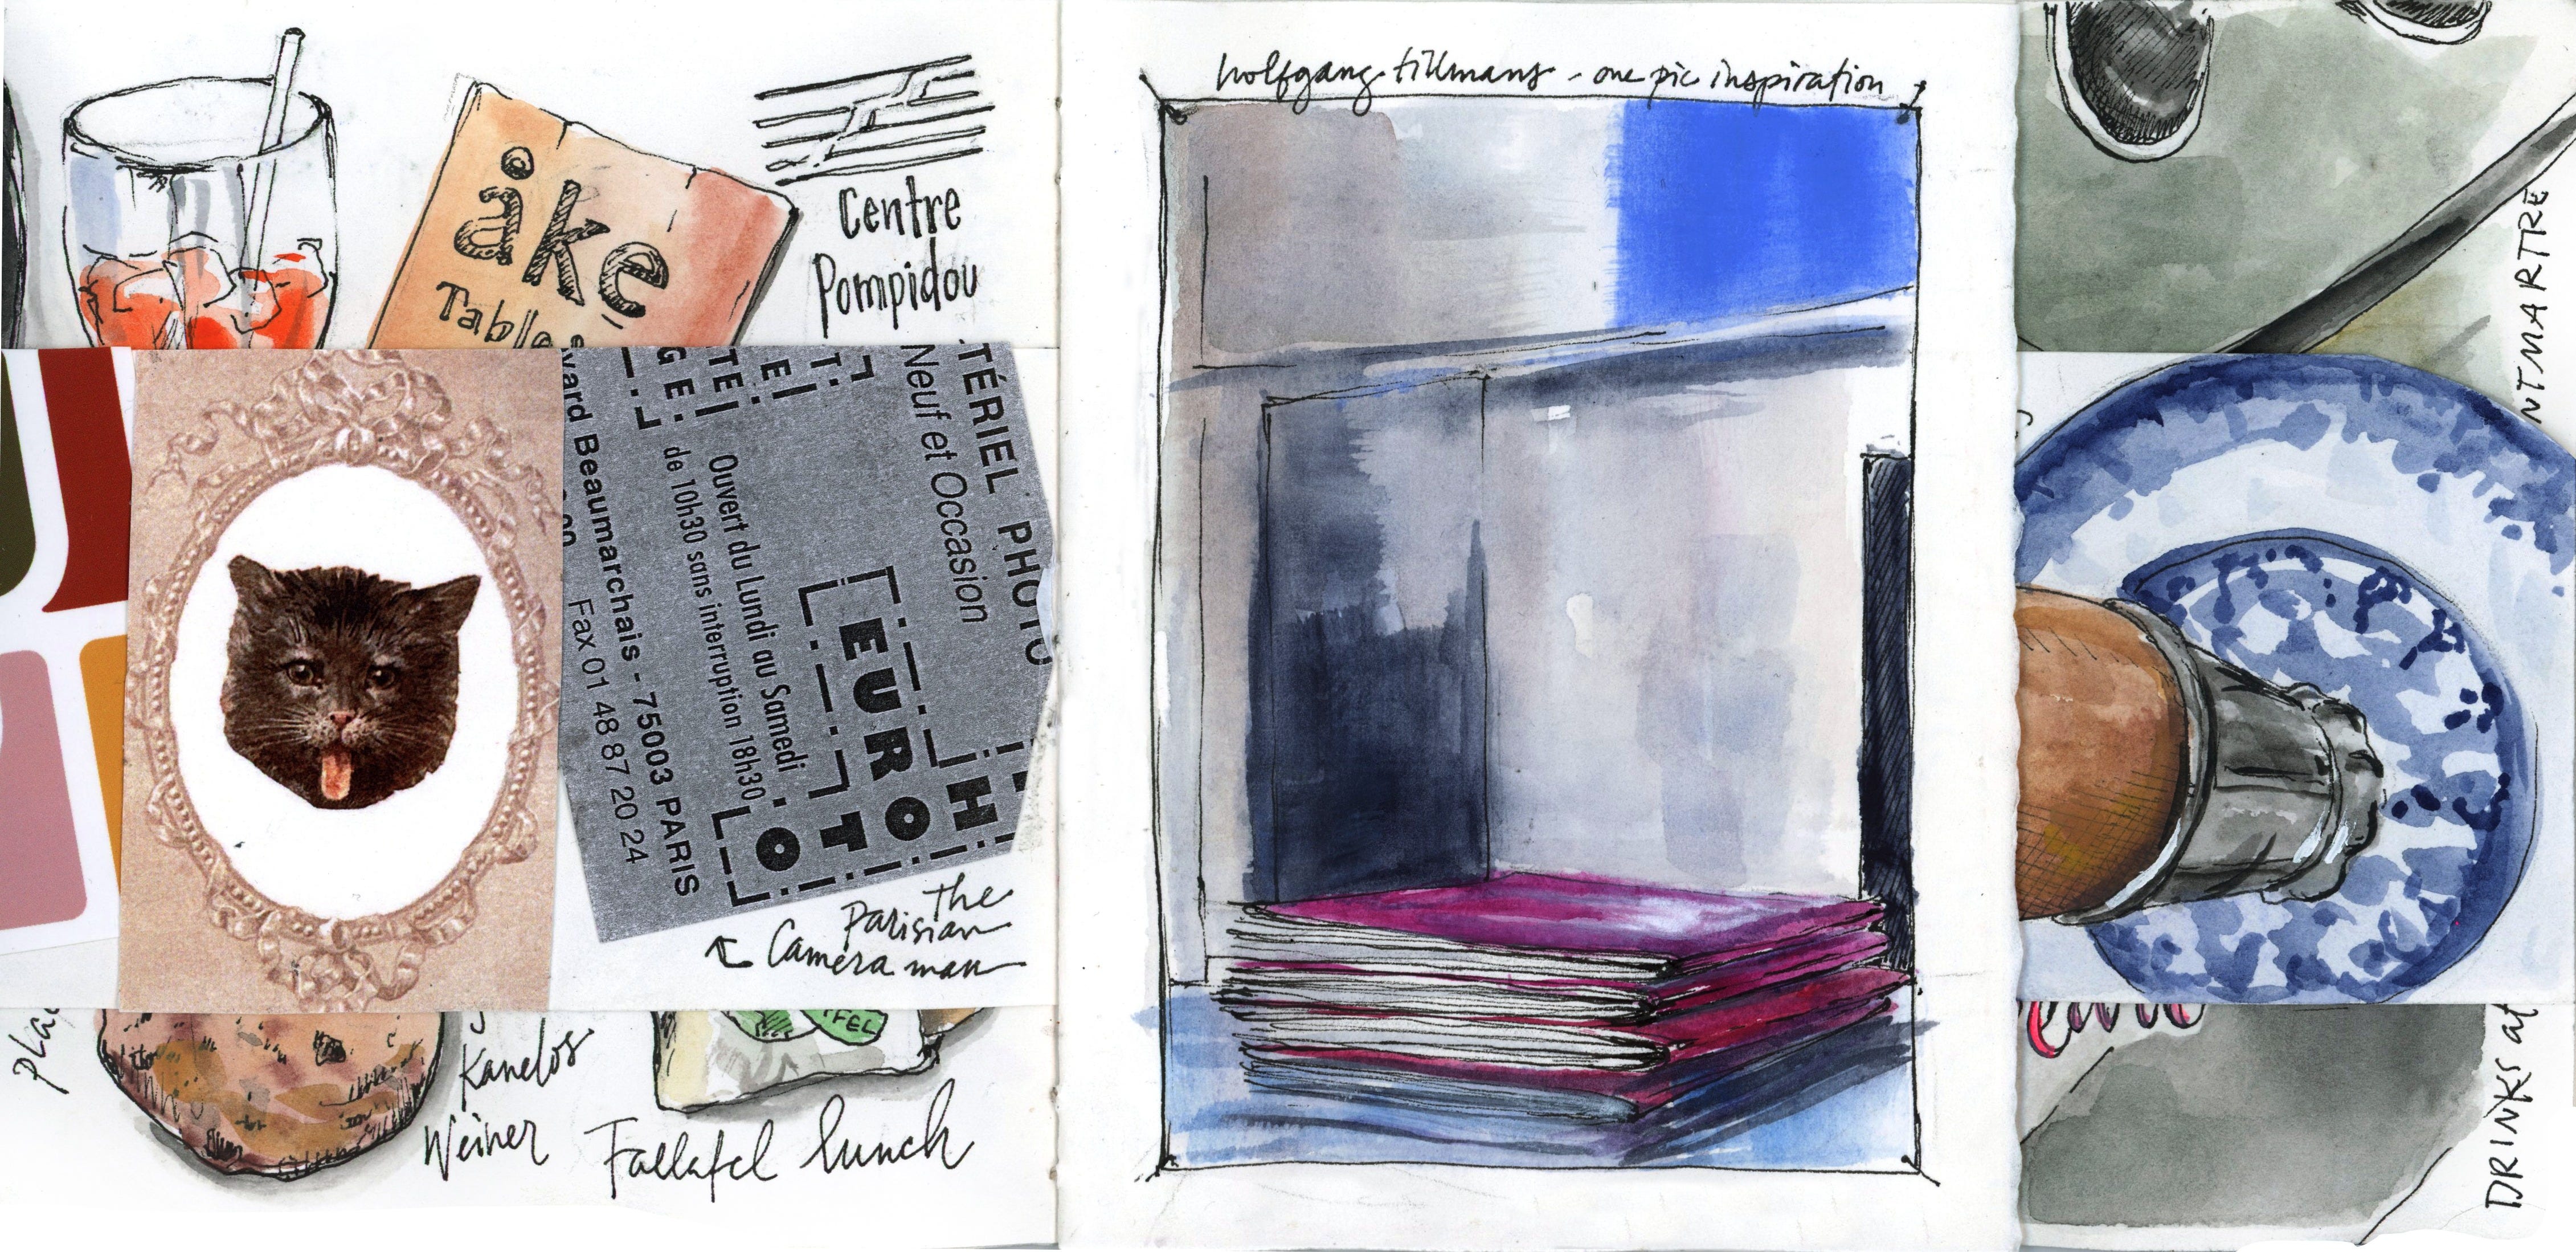 åke
Tables
Centre
Pompidou
wolfgang tillmans - one pic inspiration
TÉRIEL PHOTO
Neuf et Occasion
EURO
PHOTO
Ouvert du Lundi au Samedi
de 10h30 sans interruption 18h30
vard Beaumarchais - 75003 PARIS
Fax 01 48 87 20 24
the
Parisian
Camera man
Kanelos
Weiner
FEL
Fallafel lunch
NTMARTRE
DRINKS at